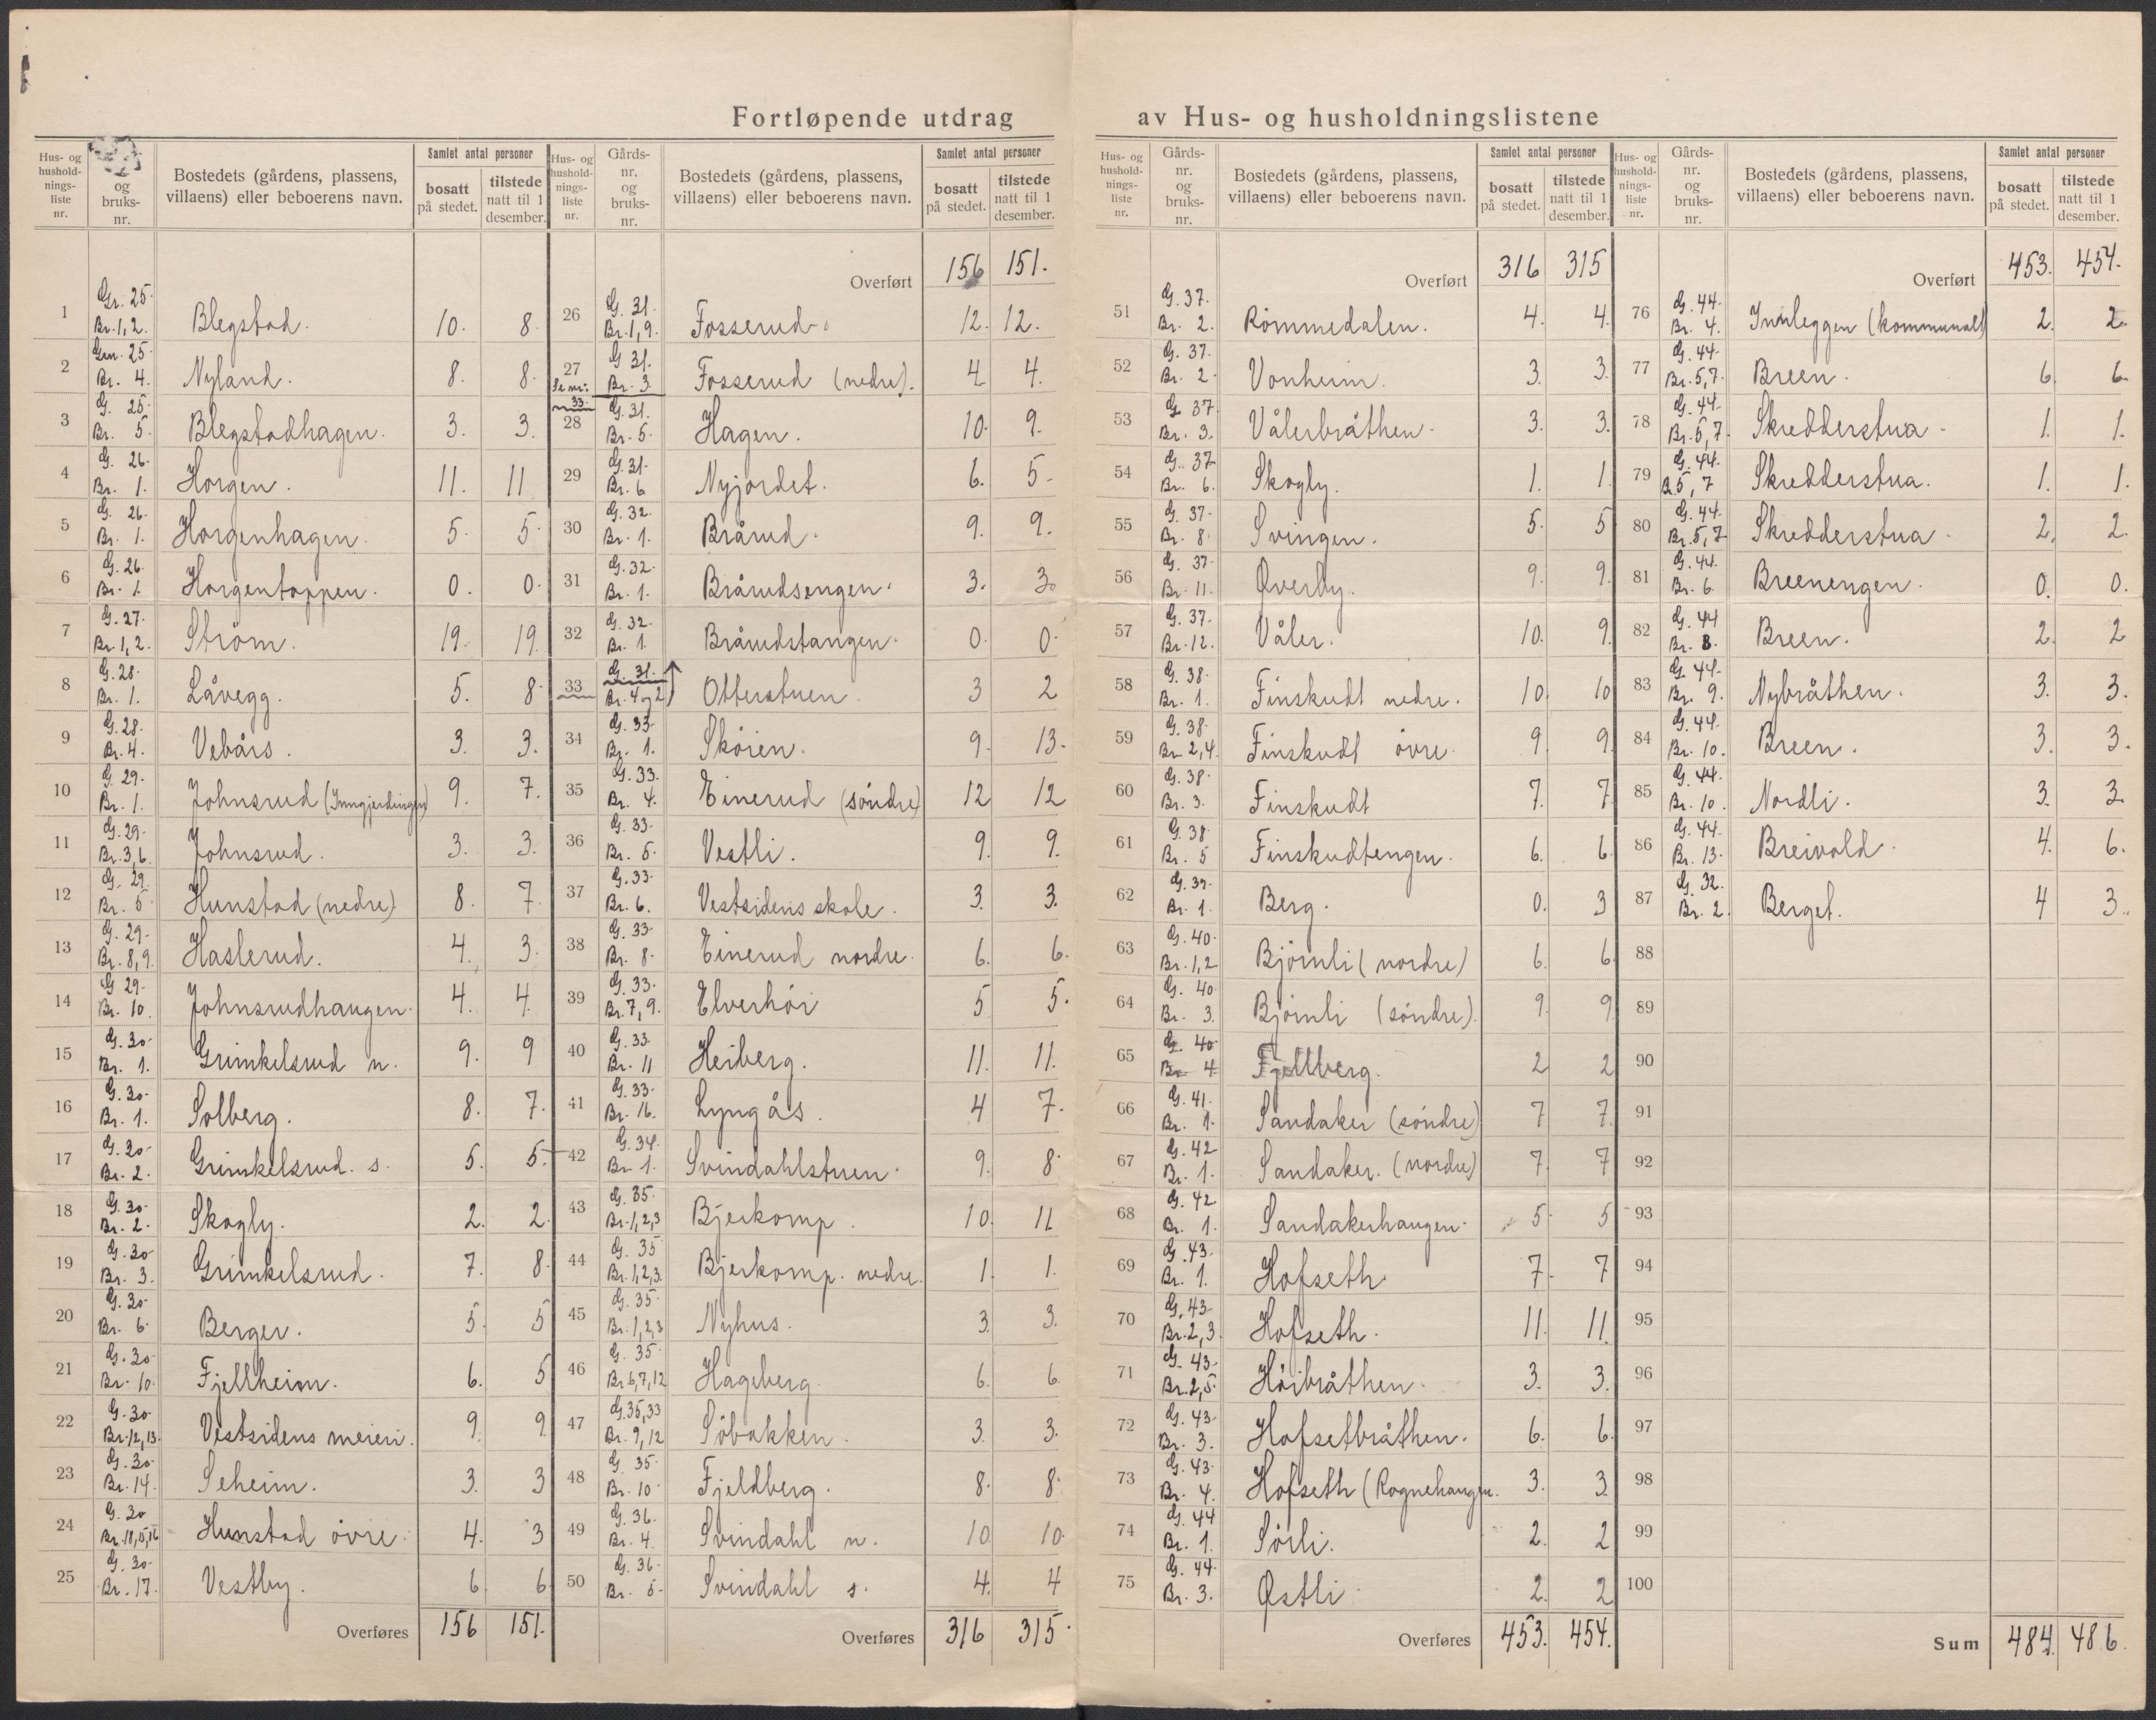 Fortløpende utdrag av Hus- og husholdningslistene
Hus- og husholdnings- liste nr. | og bruks- nr. | Bostedets (gårdens, plassens, villaens) eller beboerens navn. | Samlet antal personer | bosatt på stedet. | tilstede natt til 1 desember.
1 | G. 25. Br. 1, 2. | Blegstad. | 10. | 8.
2 | Gnr. 25. Br. 4. | Nyland. | 8. | 8.
3 | G. 25. Br. 5. | Blegstadhagen. | 3. | 3.
4 | G. 26. Br. 1. | Horgen. | 11. | 11
5 | G. 26. Br. 1. | Horgenhagen. | 5. | 5.
6 | G. 26. Br. 1. | Horgentoppen. | 0. | 0.
7 | G. 27. Br. 1, 2. | Ström. | 19. | 19.
8 | G. 28. Br. 1. | Låvegg. | 5. | 8.
9 | G. 28. Br. 4. | Vebårs. | 3. | 3.
10 | G. 29. Br. 1. | Johnsrud (Inngjerdingen) | 9. | 7.
11 | G. 29. Br. 3, 6. | Johnsrud. | 3. | 3.
12 | G. 29. Br. 5. | Hunstad (nedre) | 8. | 7.
13 | G. 29. Br. 8, 9. | Haslerud. | 4. | 3.
14 | G. 29. Br. 10. | Johnsrudhaugen. | 4. | 4.
15 | G. 30. Br. 1. | Grimkelsrud n. | 9. | 9
16 | G. 30. Br. 1. | Solberg. | 8. | 7.
17 | G. 30. Br. 2. | Grimkelsrud. s. | 5. | 5.
18 | G. 30. Br. 2. | Skogly. | 2. | 2.
19 | G. 30. Br. 3. | Grimkelsrud. | 7. | 8.
20 | G. 30. Br. 6. | Berger. | 5. | 5
21 | G. 30. Br. 10. | Fjellheim. | 6. | 5
22 | G. 30. Br. 12, 13. | Vestsidens meieri. | 9. | 9.
23 | G. 30. Br. 14. | Seheim. | 3. | 3
24 | G. 30 Br. 18, 15, 16 | Hunstad övre. | 4. | 3
25 | G. 30. Br. 17. | Vestby. | 6. | 6.
Overføres | 156 | 151.
Hus- og husholdnings- liste nr. | Gårds- nr. og bruks- nr. | Bostedets (gårdens, plassens, villaens) eller beboerens navn. | Samlet antal personer | bosatt på stedet. | tilstede natt til 1 desember.
Overført | 156 | 151.
26 | G. 31. Br. 1, 9. | Fosserud. | 12. | 12.
27 Se nr. 33. | G 31. Br. 3. | Fosserud (nedre). | 4 | 4.
28 | G. 31. Br. 5. | Hagen. | 10. | 9.
29 | G. 31. Br. 6 | Nyjordet. | 6. | 5.
30 | G. 32. Br. 1. | Brårud. | 9. | 9.
31 | G. 32. Br. 1. | Brårudsengen. | 3. | 3.
32 | G. 32. Br. 1. | Brårudstangen. | 0. | 0.
33 | G. 31. Br. 4 og 2 | Otterstuen. | 3 | 2
34 | G. 33. Br. 1. | Sköien. | 9. | 13.
35 | G. 33. Br. 4. | Einerud (söndre) | 12 | 12
36 | G. 33. Br. 5. | Vestli. | 9. | 9.
37 | G. 33. Br. 6. | Vestsidens skole. | 3. | 3.
38 | G. 33. Br. 8. | Einerud nordre. | 6. | 6.
39 | G. 33. Br. 7, 9. | Elverhöi | 5 | 5.
40 | G. 33. Br. 11 | Heiberg. | 11. | 11.
41 | G. 33. Br. 16. | Lyngås. | 4 | 7.
42 | G. 34. Br. 1. | Svindahlstuen. | 9. | 8.
43 | G. 35. Br. 1, 2, 3 | Bjerkomp. | 10. | 11
44 | G. 35 Br. 1, 2, 3. | Bjerkomp. nedre. | 1. | 1.
45 | G. 35. Br. 1, 2, 3 | Nyhus. | 3. | 3.
46 | G. 35. Br 6, 7, 12 | Hageberg. | 6. | 6.
47 | G. 35, 33 Br. 9, 12 | Söbakken. | 3. | 3.
48 | G. 35. Br. 10. | Fjeldberg. | 8. | 8.
49 | G. 36. Br. 4. | Svindahl n. | 10. | 10.
50 | G. 36. Br. 5. | Svindahl s. | 4. | 4
Overføres | 316 | 315.
Hus- og husholdnings- liste nr. | Gårds- nr. og bruks- nr. | Bostedets (gårdens, plassens, villaens) eller beboerens navn. | Samlet antal personer | bosatt på stedet. | tilstede natt til 1 desember.
Overført | 316 | 315
51 | G. 37. Br. 2. | Römmedalen. | 4. | 4.
52 | G. 37. Br. 2. | Vonheim. | 3. | 3.
53 | G. 37. Br. 3. | Vålerbråthen. | 3. | 3.
54 | G. 37. Br. 6. | Skogly. | 1. | 1.
55 | G. 37. Br. 8. | Svingen. | 5. | 5
56 | G. 37. Br. 11. | Øverby. | 9. | 9.
57 | G. 37. Br. 12. | Våler. | 10. | 9.
58 | G. 38. Br. 1. | Finskudt nedre. | 10. | 10
59 | G. 38. Br. 2, 4. | Finskudt övre | 9. | 9.
60 | G. 38. Br. 3. | Finskudt | 7. | 7
61 | G. 38. Br. 5 | Finskudtengen. | 6. | 6.
62 | G. 39. Br. 1. | Berg. | 0. | 3
63 | G. 40. Br. 1, 2 | Björnli (nordre) | 6. | 6.
64 | G. 40. Br. 3. | Björnli (söndre) | 9. | 9.
65 | G. 40 Br. 4 | Fjellberg. | 2 | 2
66 | G. 41. Br. 1. | Sandaker (söndre) | 7 | 7.
67 | G. 42 Br. 1. | Sandaker. (nordre) | 7. | 7
68 | G. 42. Br. 1. | Sandakerhaugen. | 5. | 5
69 | G. 43. Br. 1. | Hofseth | 7. | 7
70 | G. 43. Br. 2, 3. | Hofseth. | 11. | 11.
71 | G. 43. Br. 2, 5. | Höibråthen. | 3. | 3.
72 | G. 43. Br. 3. | Hofsetbråthen. | 6. | 6.
73 | G. 43. Br. 4. | Hofseth (Rognehaugen. | 3. | 3
74 | G. 44 Br. 1. | Sörli. | 2. | 2
75 | G. 44. Br. 3. | Østli | 2. | 2
Overføres | 453. | 454.
Hus- og husholdnings- liste nr. | Gårds- nr. og bruks- nr. | Bostedets (gårdens, plassens, villaens) eller beboerens navn. | Samlet antal personer | bosatt på stedet. | tilstede natt til 1 desember.
Overført | 453. | 454.
76 | G. 44. Br. 4. | Innleggen (kommunalt) | 2. | 2.
77 | G. 44. Br. 5, 7. | Breen. | 6. | 6.
78 | G. 44. Br. 5, 7. | Skredderstua. | 1. | 1.
79 | G. 44. B. 5, 7 | Skredderstua. | 1. | 1.
80 | G. 44. Br. 5, 7 | Skredderstua. | 2. | 2.
81 | G. 44. Br. 6. | Breenengen. | 0. | 0.
82 | G. 44 Br. 8. | Breen. | 2. | 2
83 | G. 44. Br. 9. | Nybråthen. | 3. | 3.
84 | G. 44. Br. 10. | Breen. | 3. | 3.
85 | G. 44. Br. 10. | Nordli. | 3. | 3.
86 | G. 44. Br. 13. | Breivold. | 4. | 6.
87 | G. 32. Br. 2. | Berget. | 4 | 3.
88
89
90
91
92
93
94
95
96
97
98
99
100
Sum | 484. | 486.